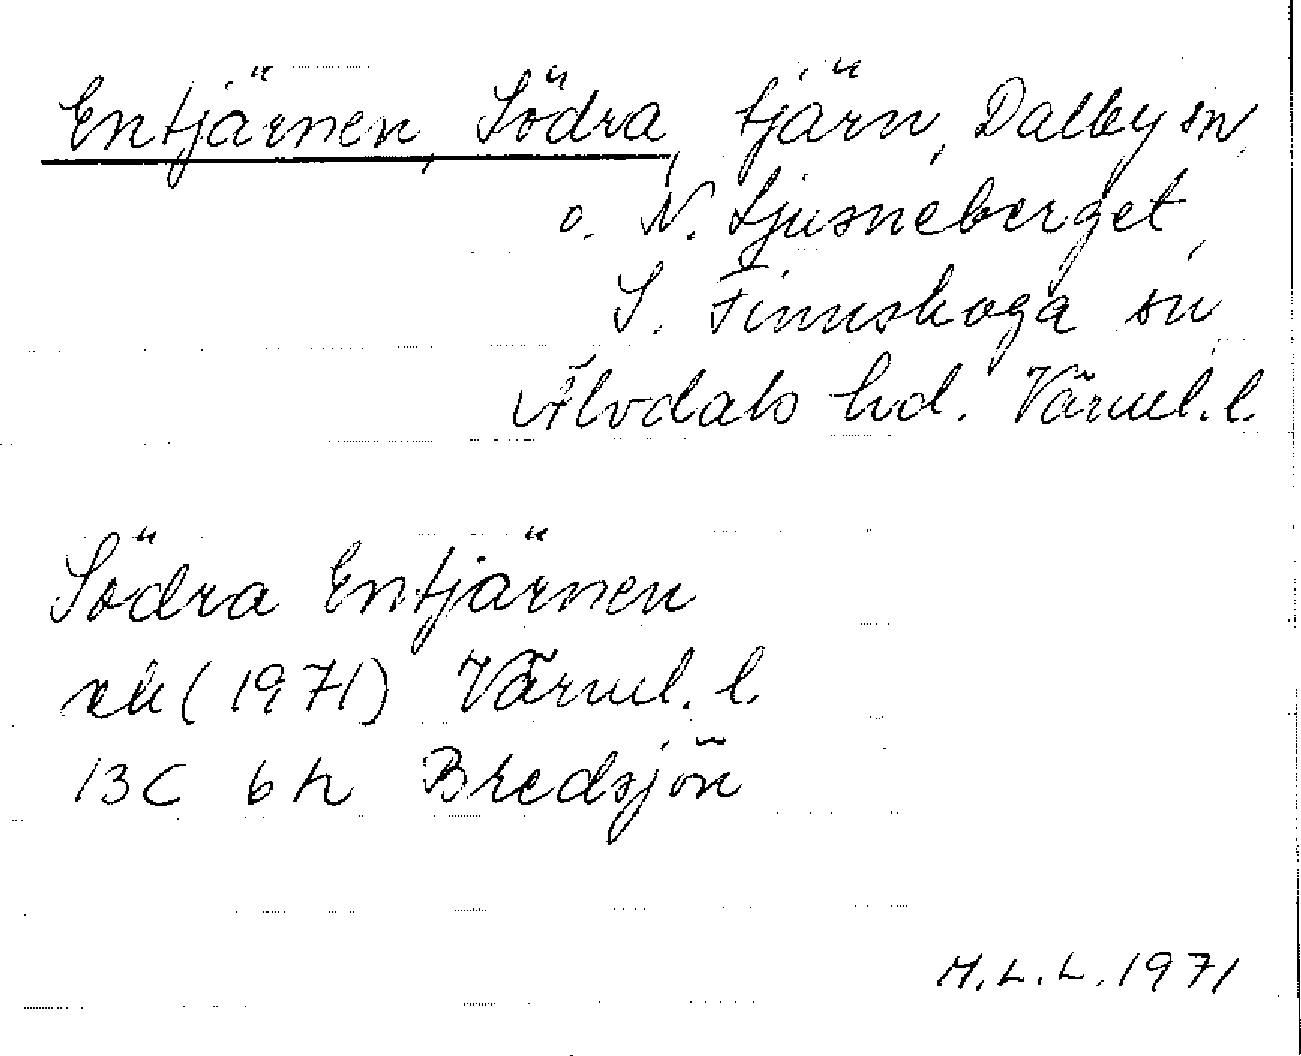 Entjärnen, Södra, tjärn, Dalby sn,
o. N. Ljusneberget,
S. Finnskoga sn
Älvdals hd. Värml. l.
Södra Entjärnen
ek (1971) Värml. l.
13C 6h Bredsjön
M.L.L. 1971